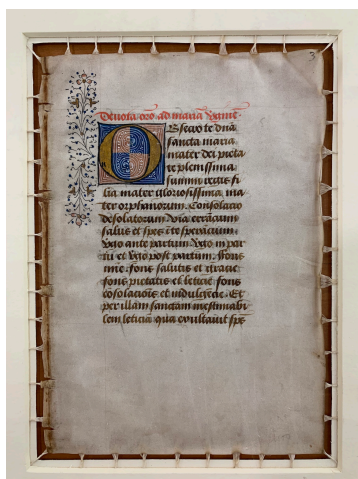 Deuota oro ad maria Vgine
Obsecro te dna
sancta maria
mater dei pieta
te plenissima
summi regis fi
lia mater gloriosissima ma
ter orphanorum. Consolacio
desolatorum via erracium
salus et spes i te speracium.
Vgo ante partum Vgo in par
tu et Vgo post partum. ffons
mie. fons salutis et gracie
fons pietatis et leticie fons
cosolacionis et indulgecie. Et
per illam sanctam inestimabi
lem leticia qua exultauit sps